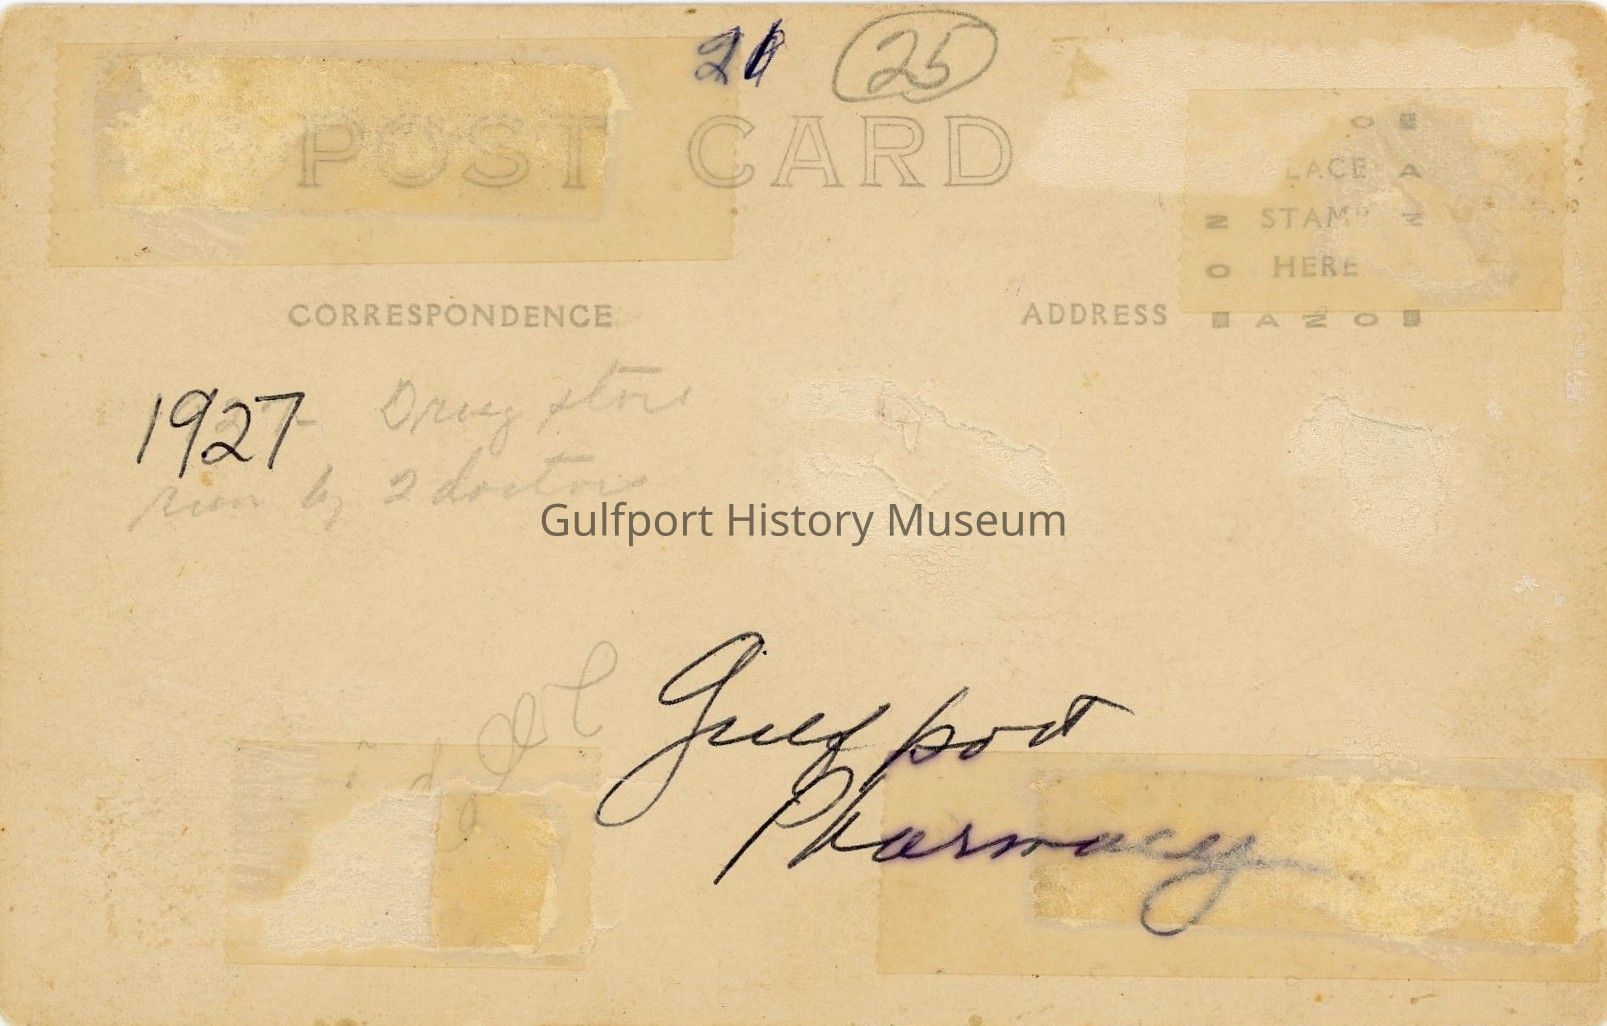 25
POST CARD
LACE
STAMP
HERE
CORRESPONDENCE
ADDRESS
A Z O
1927 Drug store
run by 2 doctors
Gulfport History Museum
Gulfport
Pharmacy